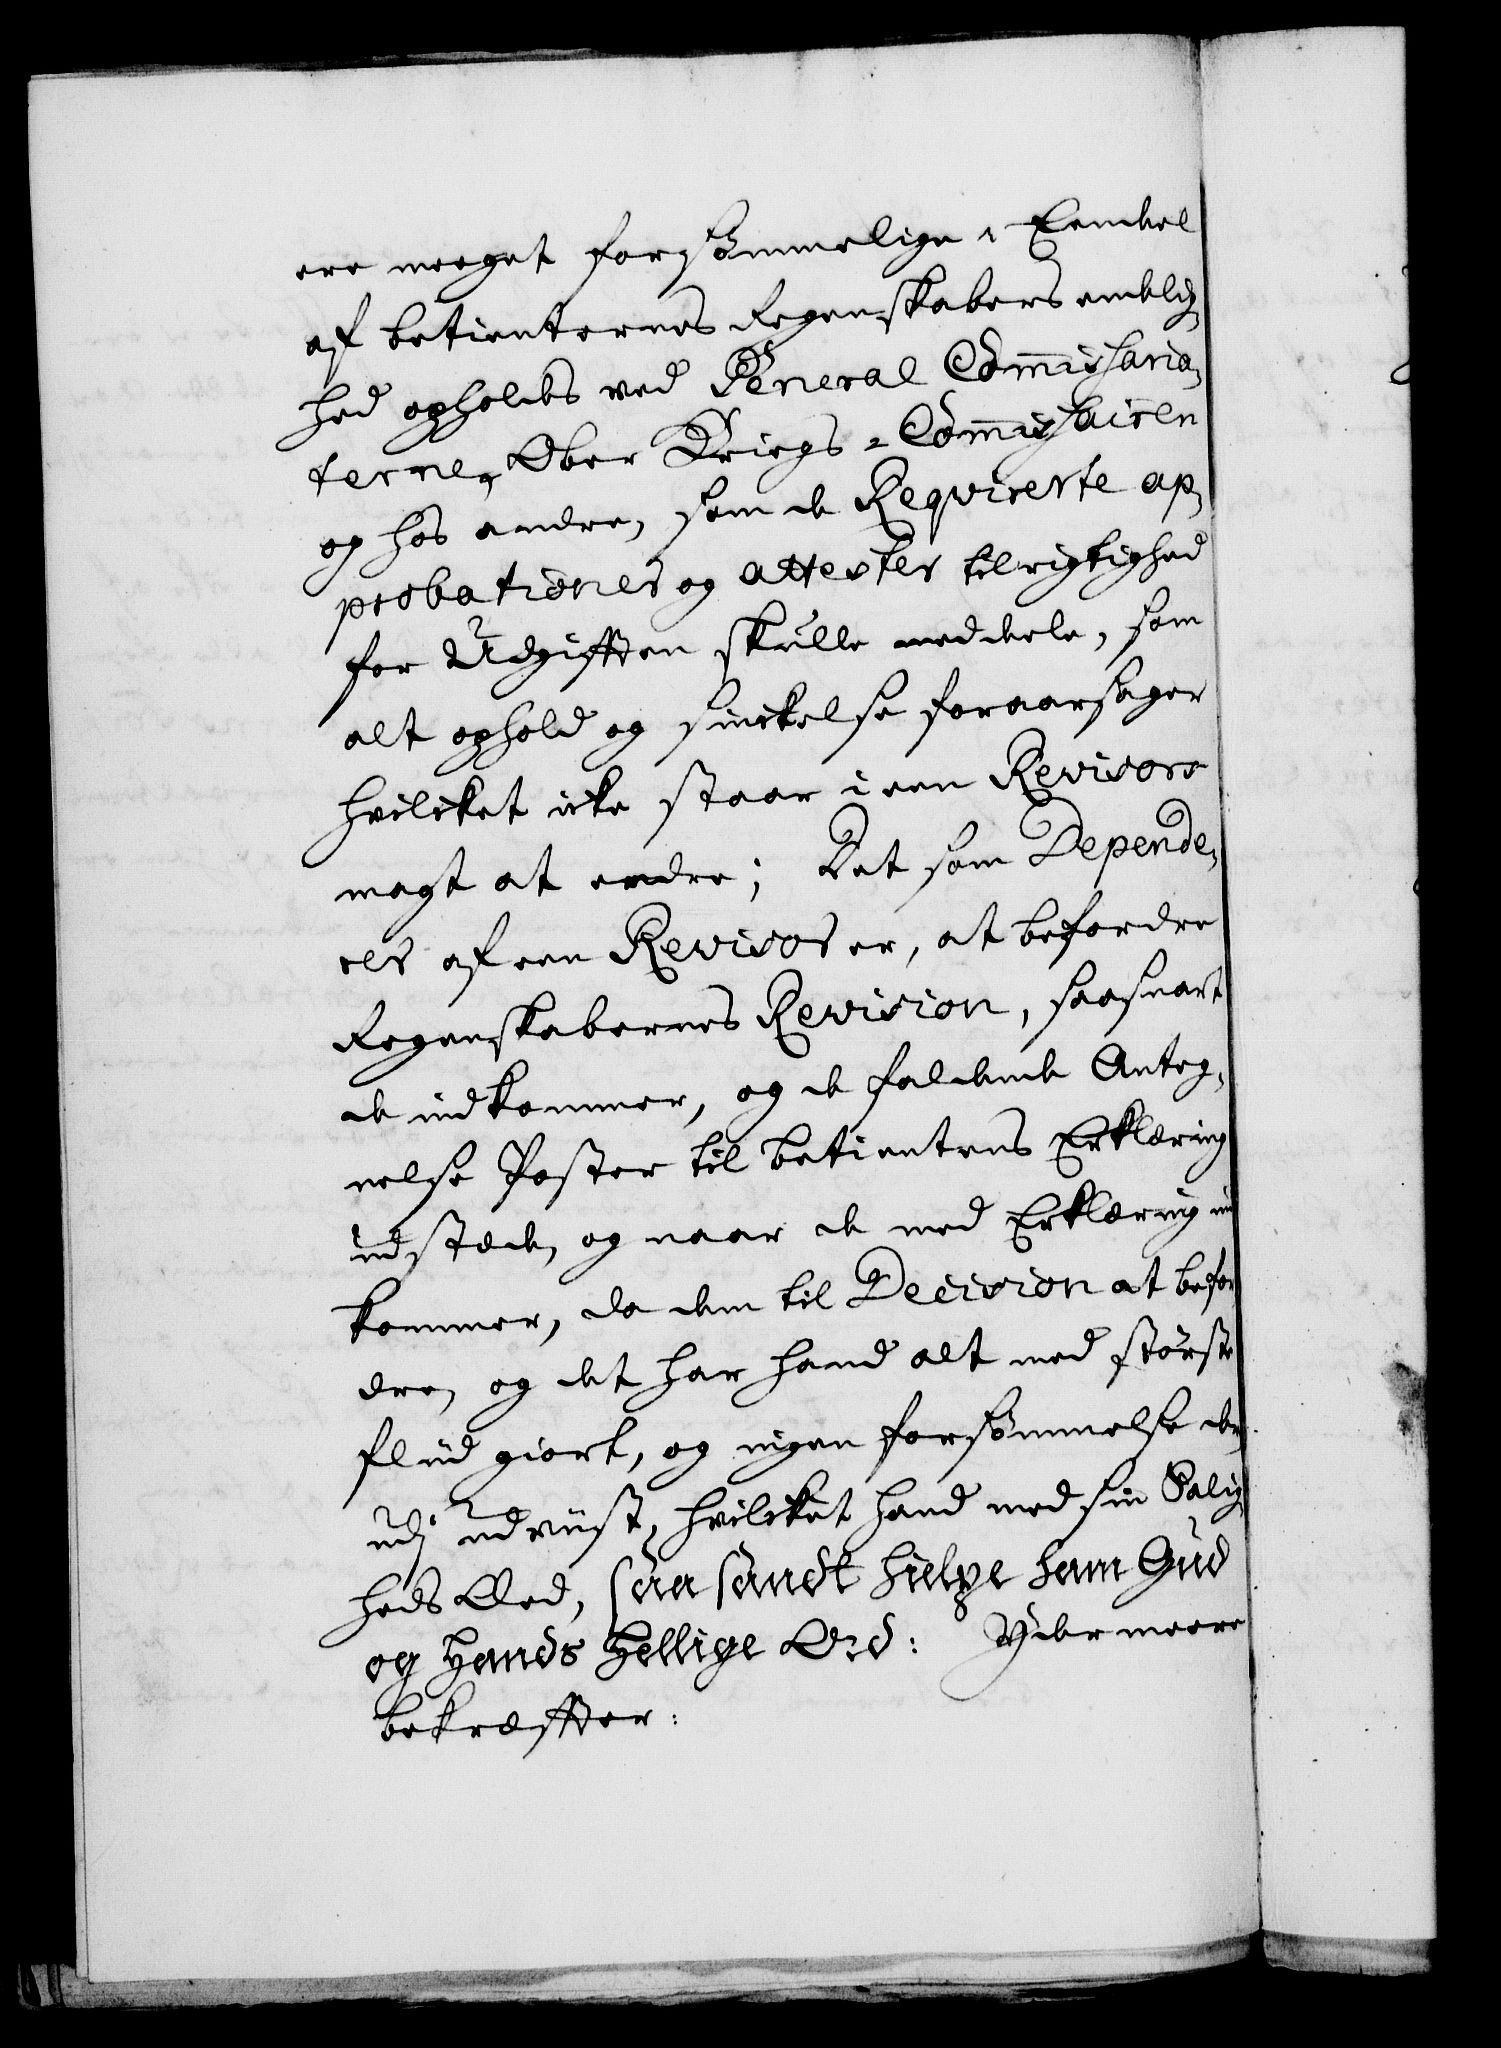 ere meeget forsömmelige, Eendeel
af betienternes Regenskabers endelig¸
hed opholdes ved General Commissaria¸
terne, Ober Kriegs¸Commissairen
og hos andre, som de Reqvirerte ap¸
probationer og attester til rigtighed
for Udgifften skulle meddeele, som
alt ophold og sinckelse foraarsager
hvilcket icke staar i een Revisors
magt at endre; Det som Depende¸
rer af een Revisor er, at befordre
Regenskabernes Revision, saasnart
de indkommer, og de faldende Anteg¸
nelse Poster til betientens Erklæring
udstæde, og naar de med Erklæring ind
kommer, da dem til Decision at befor
dre, og det har hand alt med störste
fliid giort, og ingen forsömmelse der
udj udviist, hvilcket hand med sin Salig¸
heds Eed, saa sandt hielpe ham Gud
og Hands Hellige Ord: Ydermeere
bekræffter: